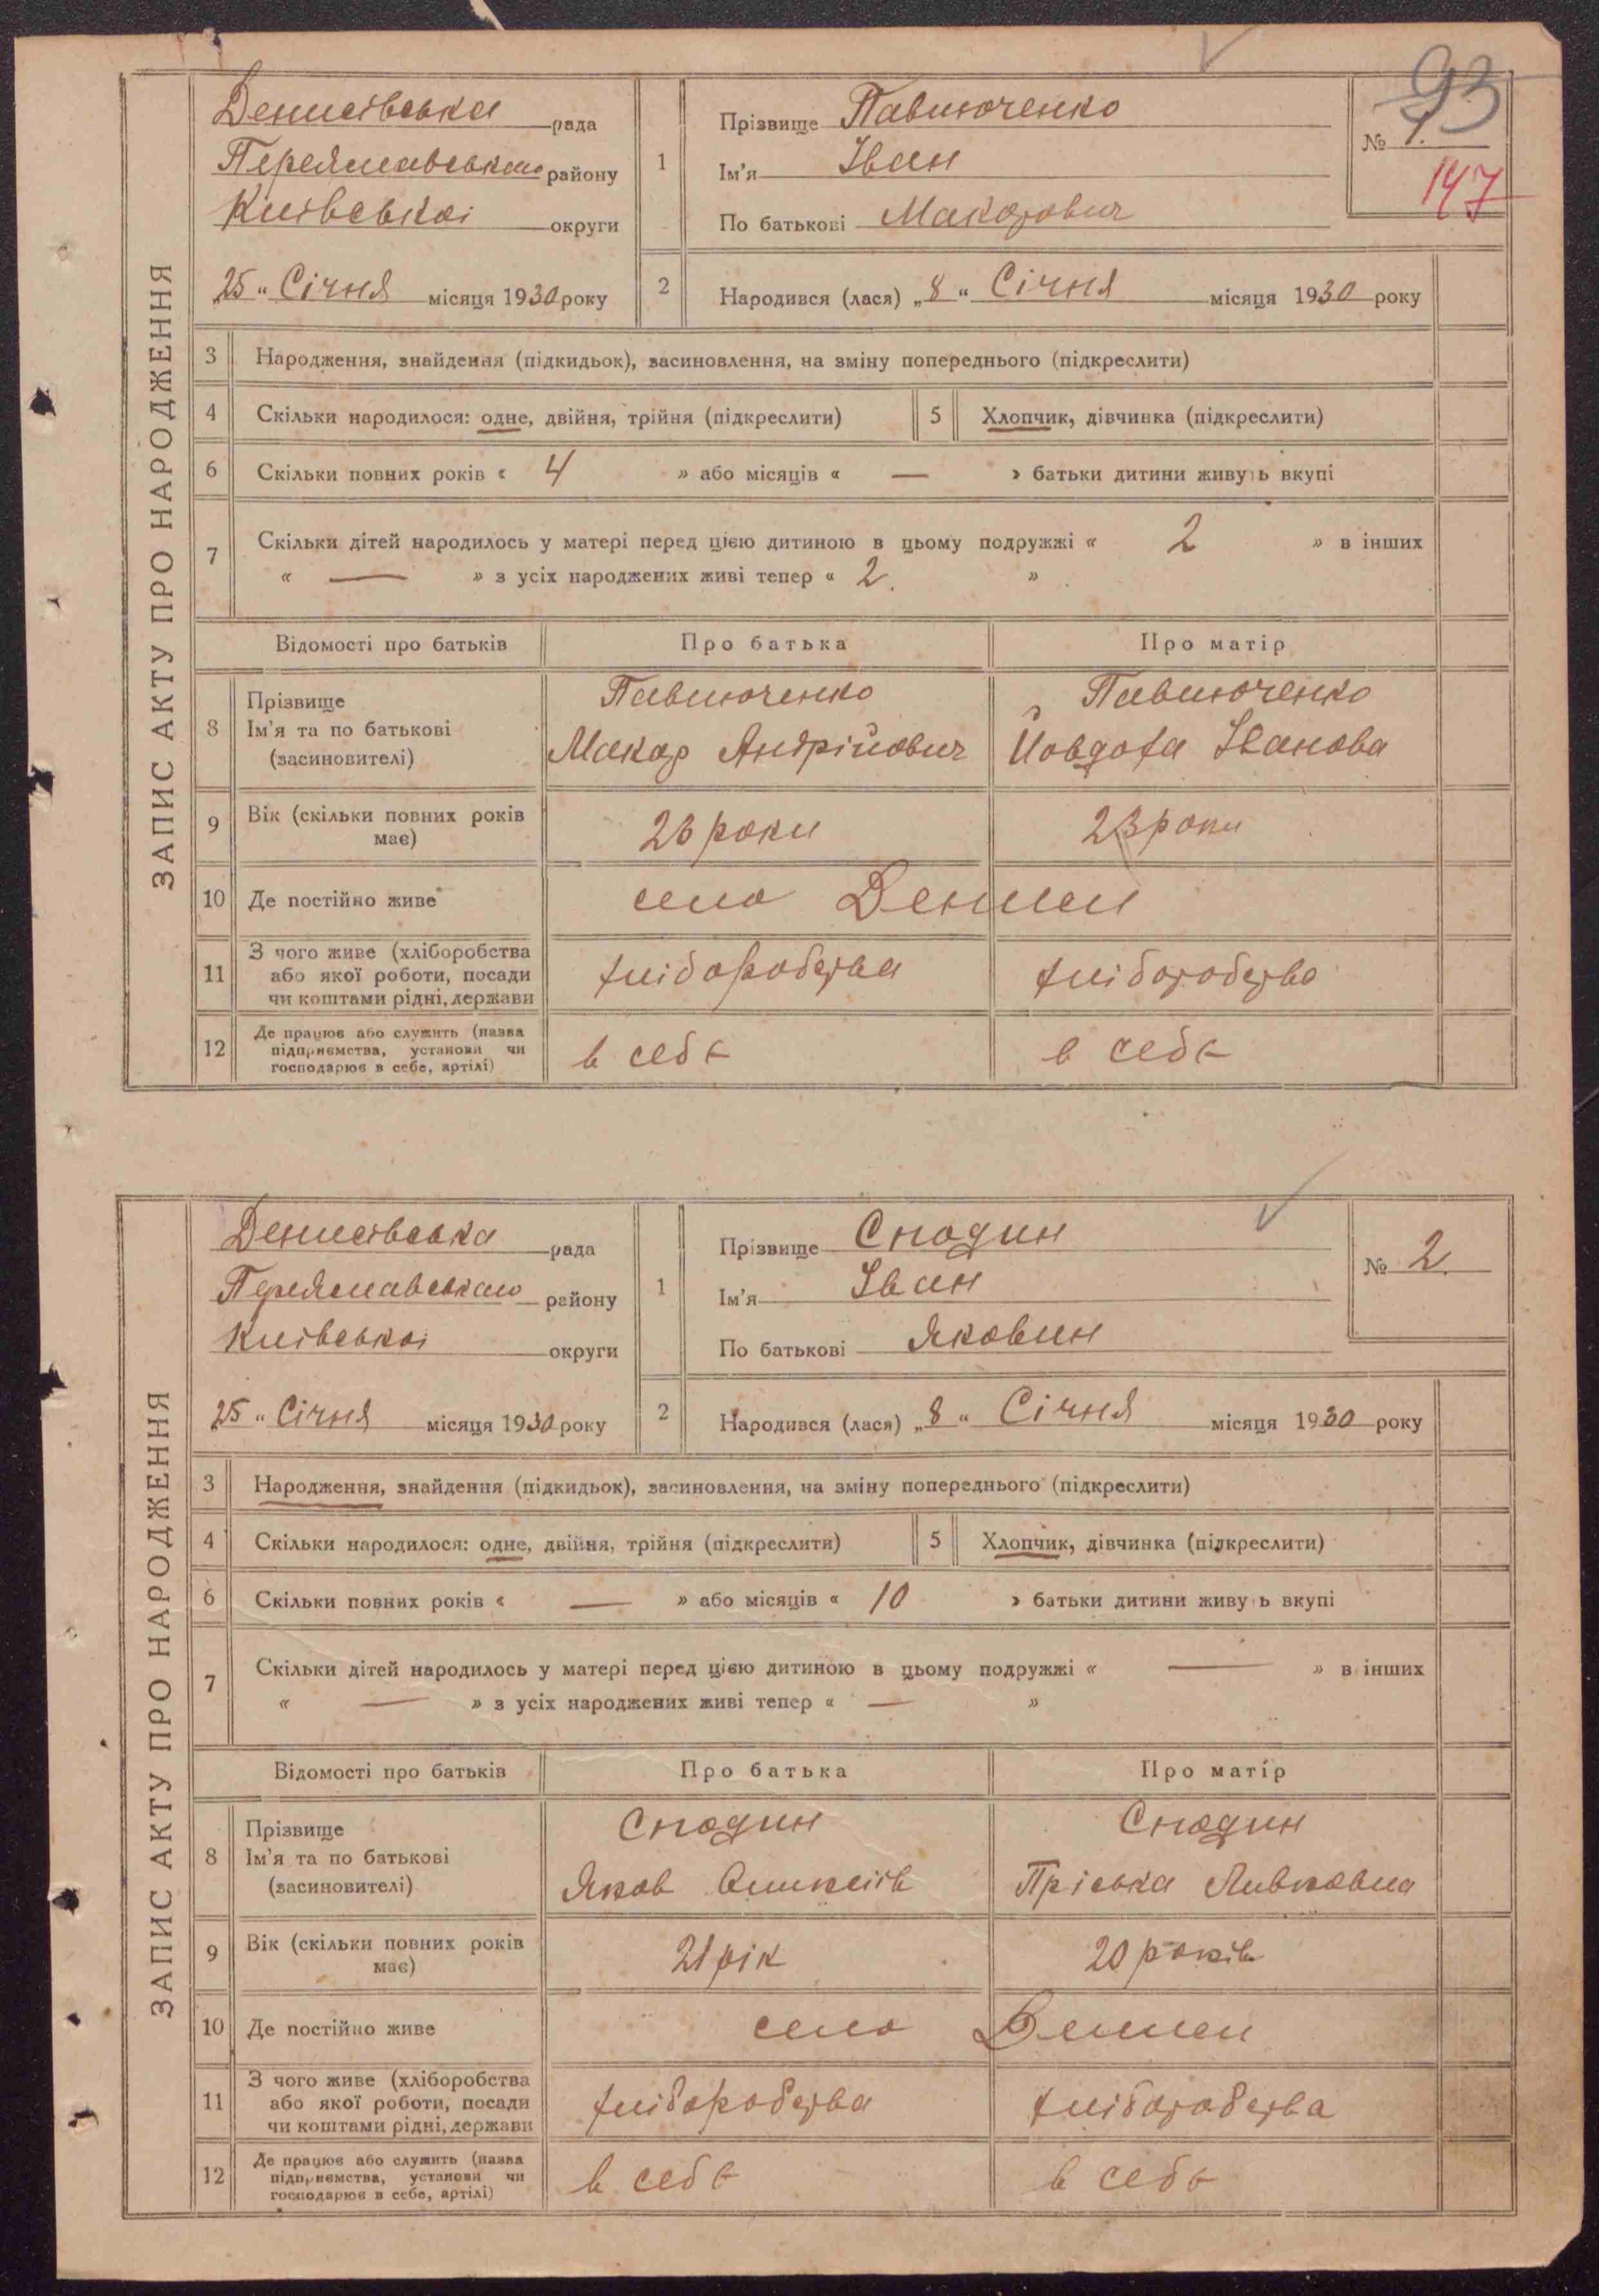 ЗАПИС АКТУ ПРО НАРОДЖЕННЯ
93
147
Денисівська рада
Переяславського району
Київської округи
25 „ Січня місяця 1930 року
1 Прізвище Павлюченко
Ім'я Іван
По батькові Макарович
№ 1.
2 Народився (лася) „8“ Січня місяця 1930 року
3 Народження, знайдення (підкидьок), засиновлення, на зміну попереднього (підкреслити)
4 Скільки народилося: одне, двійня, трійня (підкреслити) 5 Хлопчик, дівчинка (підкреслити)
6 Скільки повних років « 4 » або місяців « — » батьки дитини живуть вкупі
7 Скільки дітей народилось у матері перед цією дитиною в цьому подружжі « 2 » в інших
« — » з усіх народжених живі тепер « 2. »
Відомості про батьків Про батька Про матір
8 Прізвище Павлюченко Павлюченко
Ім'я та по батькові Макар Андрійович Йовдоха Іванова
(засиновителі)
9 Вік (скільки повних років має) 26 роки 23 роки
10 Де постійно живе село Дениси
11 З чого живе (хліборобства
або якої роботи, посади хліборобства хліборобство
чи коштами рідні, держави
12 Де працює або служить (назва
підприємства, установи чи в себе в себе
господарює в себе, артілі)
ЗАПИС АКТУ ПРО НАРОДЖЕННЯ
Денисівська рада
Переяславського району
Київської округи
25 „ Січня місяця 1930 року
1 Прізвище Сподин
Ім'я Іван
По батькові Яковин
№ 2.
2 Народився (лася) „8“ Січня місяця 1930 року
3 Народження, знайдення (підкидьок), засиновлення, на зміну попереднього (підкреслити)
4 Скільки народилося: одне, двійня, трійня (підкреслити) 5 Хлопчик, дівчинка (підкреслити)
6 Скільки повних років « — » або місяців « 10 » батьки дитини живуть вкупі
7 Скільки дітей народилось у матері перед цією дитиною в цьому подружжі « — » в інших
« — » з усіх народжених живі тепер « — »
Відомості про батьків Про батька Про матір
8 Прізвище Сподин Сподин
Ім'я та по батькові Яков Олексіїв Пріська Ливковна
(засиновителі)
9 Вік (скільки повних років має) 21 рік 20 років
10 Де постійно живе село Дениси
11 З чого живе (хліборобства
або якої роботи, посади хліборобства хліборобства
чи коштами рідні, держави
12 Де працює або служить (назва
підприємства, установи чи в себе в себе
господарює в себе, артілі)